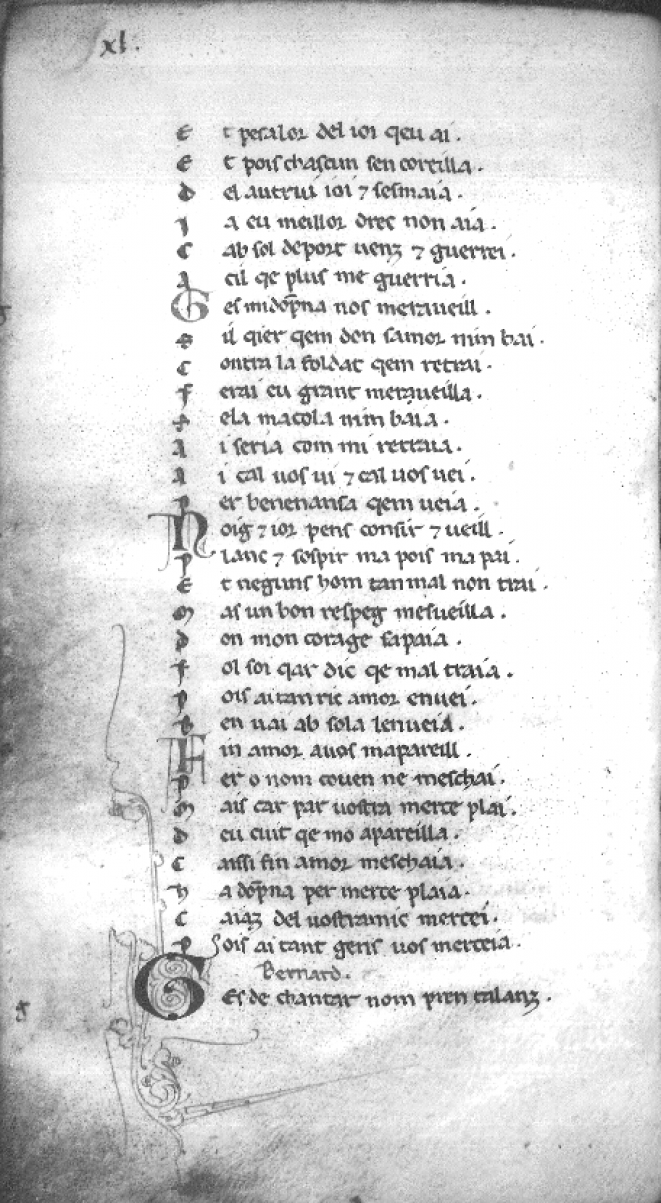 xl.
E t pesalor del ioi qeu ai.
E t pois chascun sen coreilla.
D el autrui ioi ⁊ sesmaia.
J a eu meillor drec non aia.
C ab sol deport uenz ⁊ guerrei.
A cil qe plus me guerria.
G es midōpna nos meraueill.
S il qier qem don samor nim bai.
C ontra la foldat qem retrai.
F erai eu grant meraueilla.
S ela macola nim baia.
A i seria com mi retraia.
A i cal uos ui ⁊ cal uos uei.
P er benenansa qem ueia.
N oig ⁊ ior pens consir ⁊ ueill.
P lanc ⁊ sospir ma pois ma pai.
E t neguns hom tan mal non trai.
M as un bon respeg mesueilla.
D on mon corage sapaia.
F ol soi qar dic qe mal traia.
P ois aitan ric amor enuei.
B en uai ab sola lenueia.
F in amor auos mapareill.
P er o nom couen ne meschai.
M ais car par uostra merce plai.
D eu cuit qe mo apareilla.
C aissi fin amor meschaia.
H a dōpna per merce plaia.
C aiaz del uostramic mercei.
P ois aitant gens uos merceia.
Bernard.
G Es de chantar nom pren talanz.